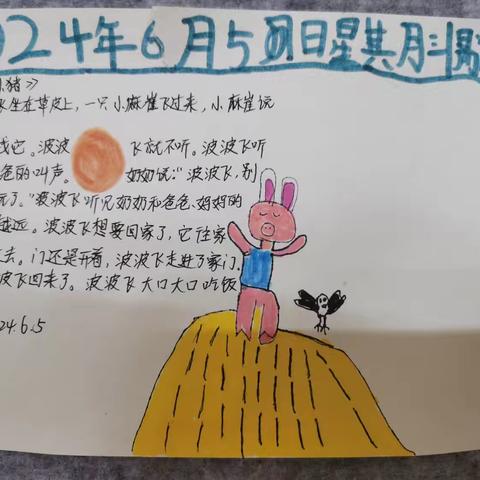 024年6月5日星其月三
小猪》
生在草皮上,一只小麻雀飞过来,小麻雀说
找它。波波飞就不听。波波飞听
爸的叫声。奶奶说:“波波飞,别
玩了。”波波飞听见奶奶和爸爸、妈妈的
越远。波波飞想要回家了,它往家
去。门还是开着,波波飞走进了家门.
波飞回来了。波波飞大口大口吃饭
24.6.5